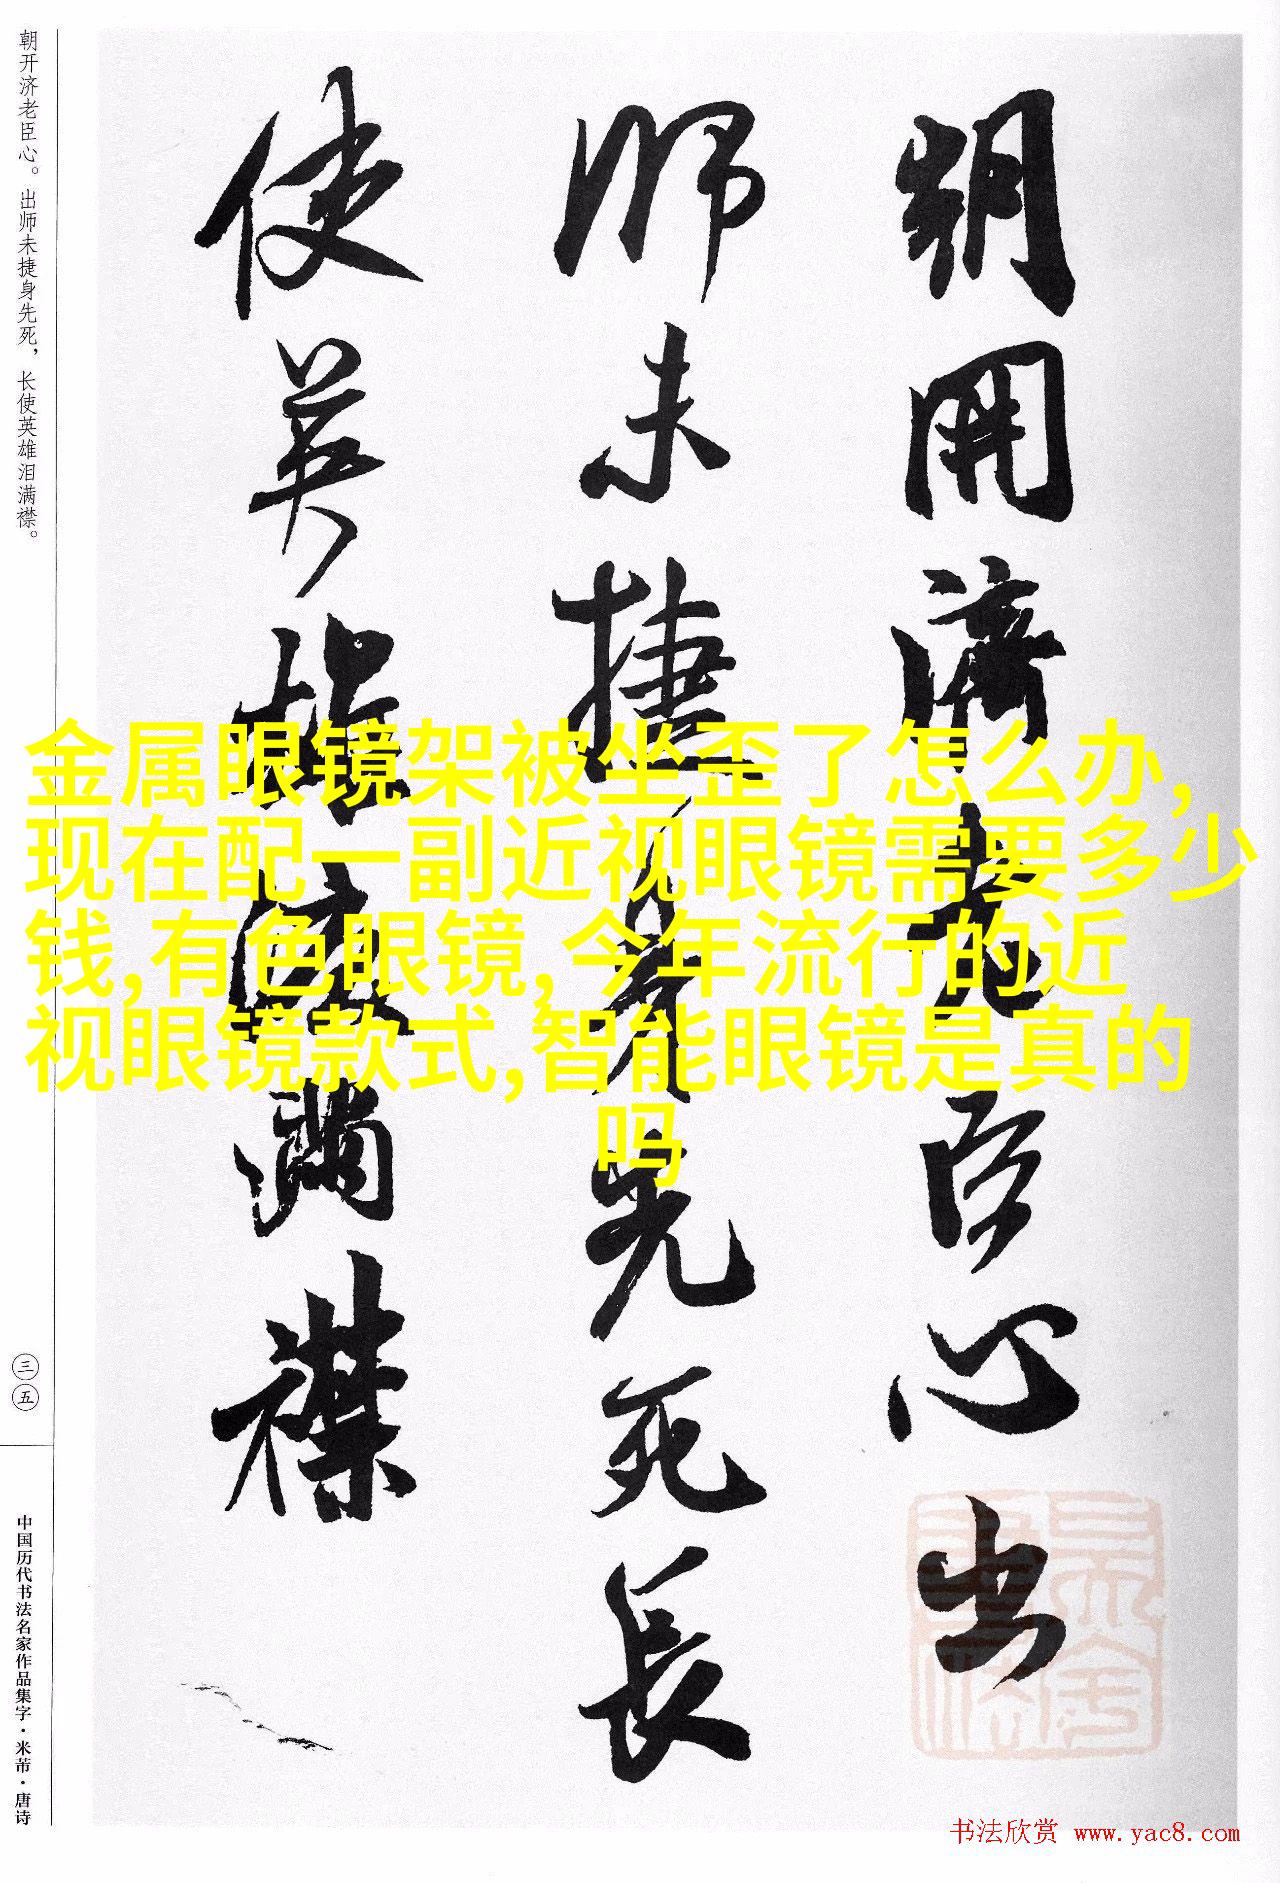 朝开济老臣心。出师未捷身先死，长使英雄泪满襟。
三五
中国历代书法名家作品集字·米芾·唐诗
朝開濟老臣心出
師未捷身先死長
使英雄淚滿襟
金属眼镜架被坐歪了怎么办,
现在配一副近视眼镜需要多少
钱,有色眼镜,今年流行的近
视眼镜款式,智能眼镜是真的
吗
书法欣赏 www.yac8.com